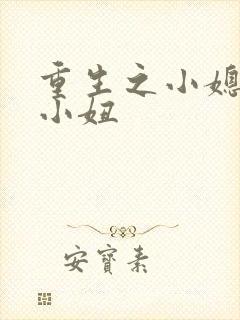 重生之小媳
小姐
安寶素